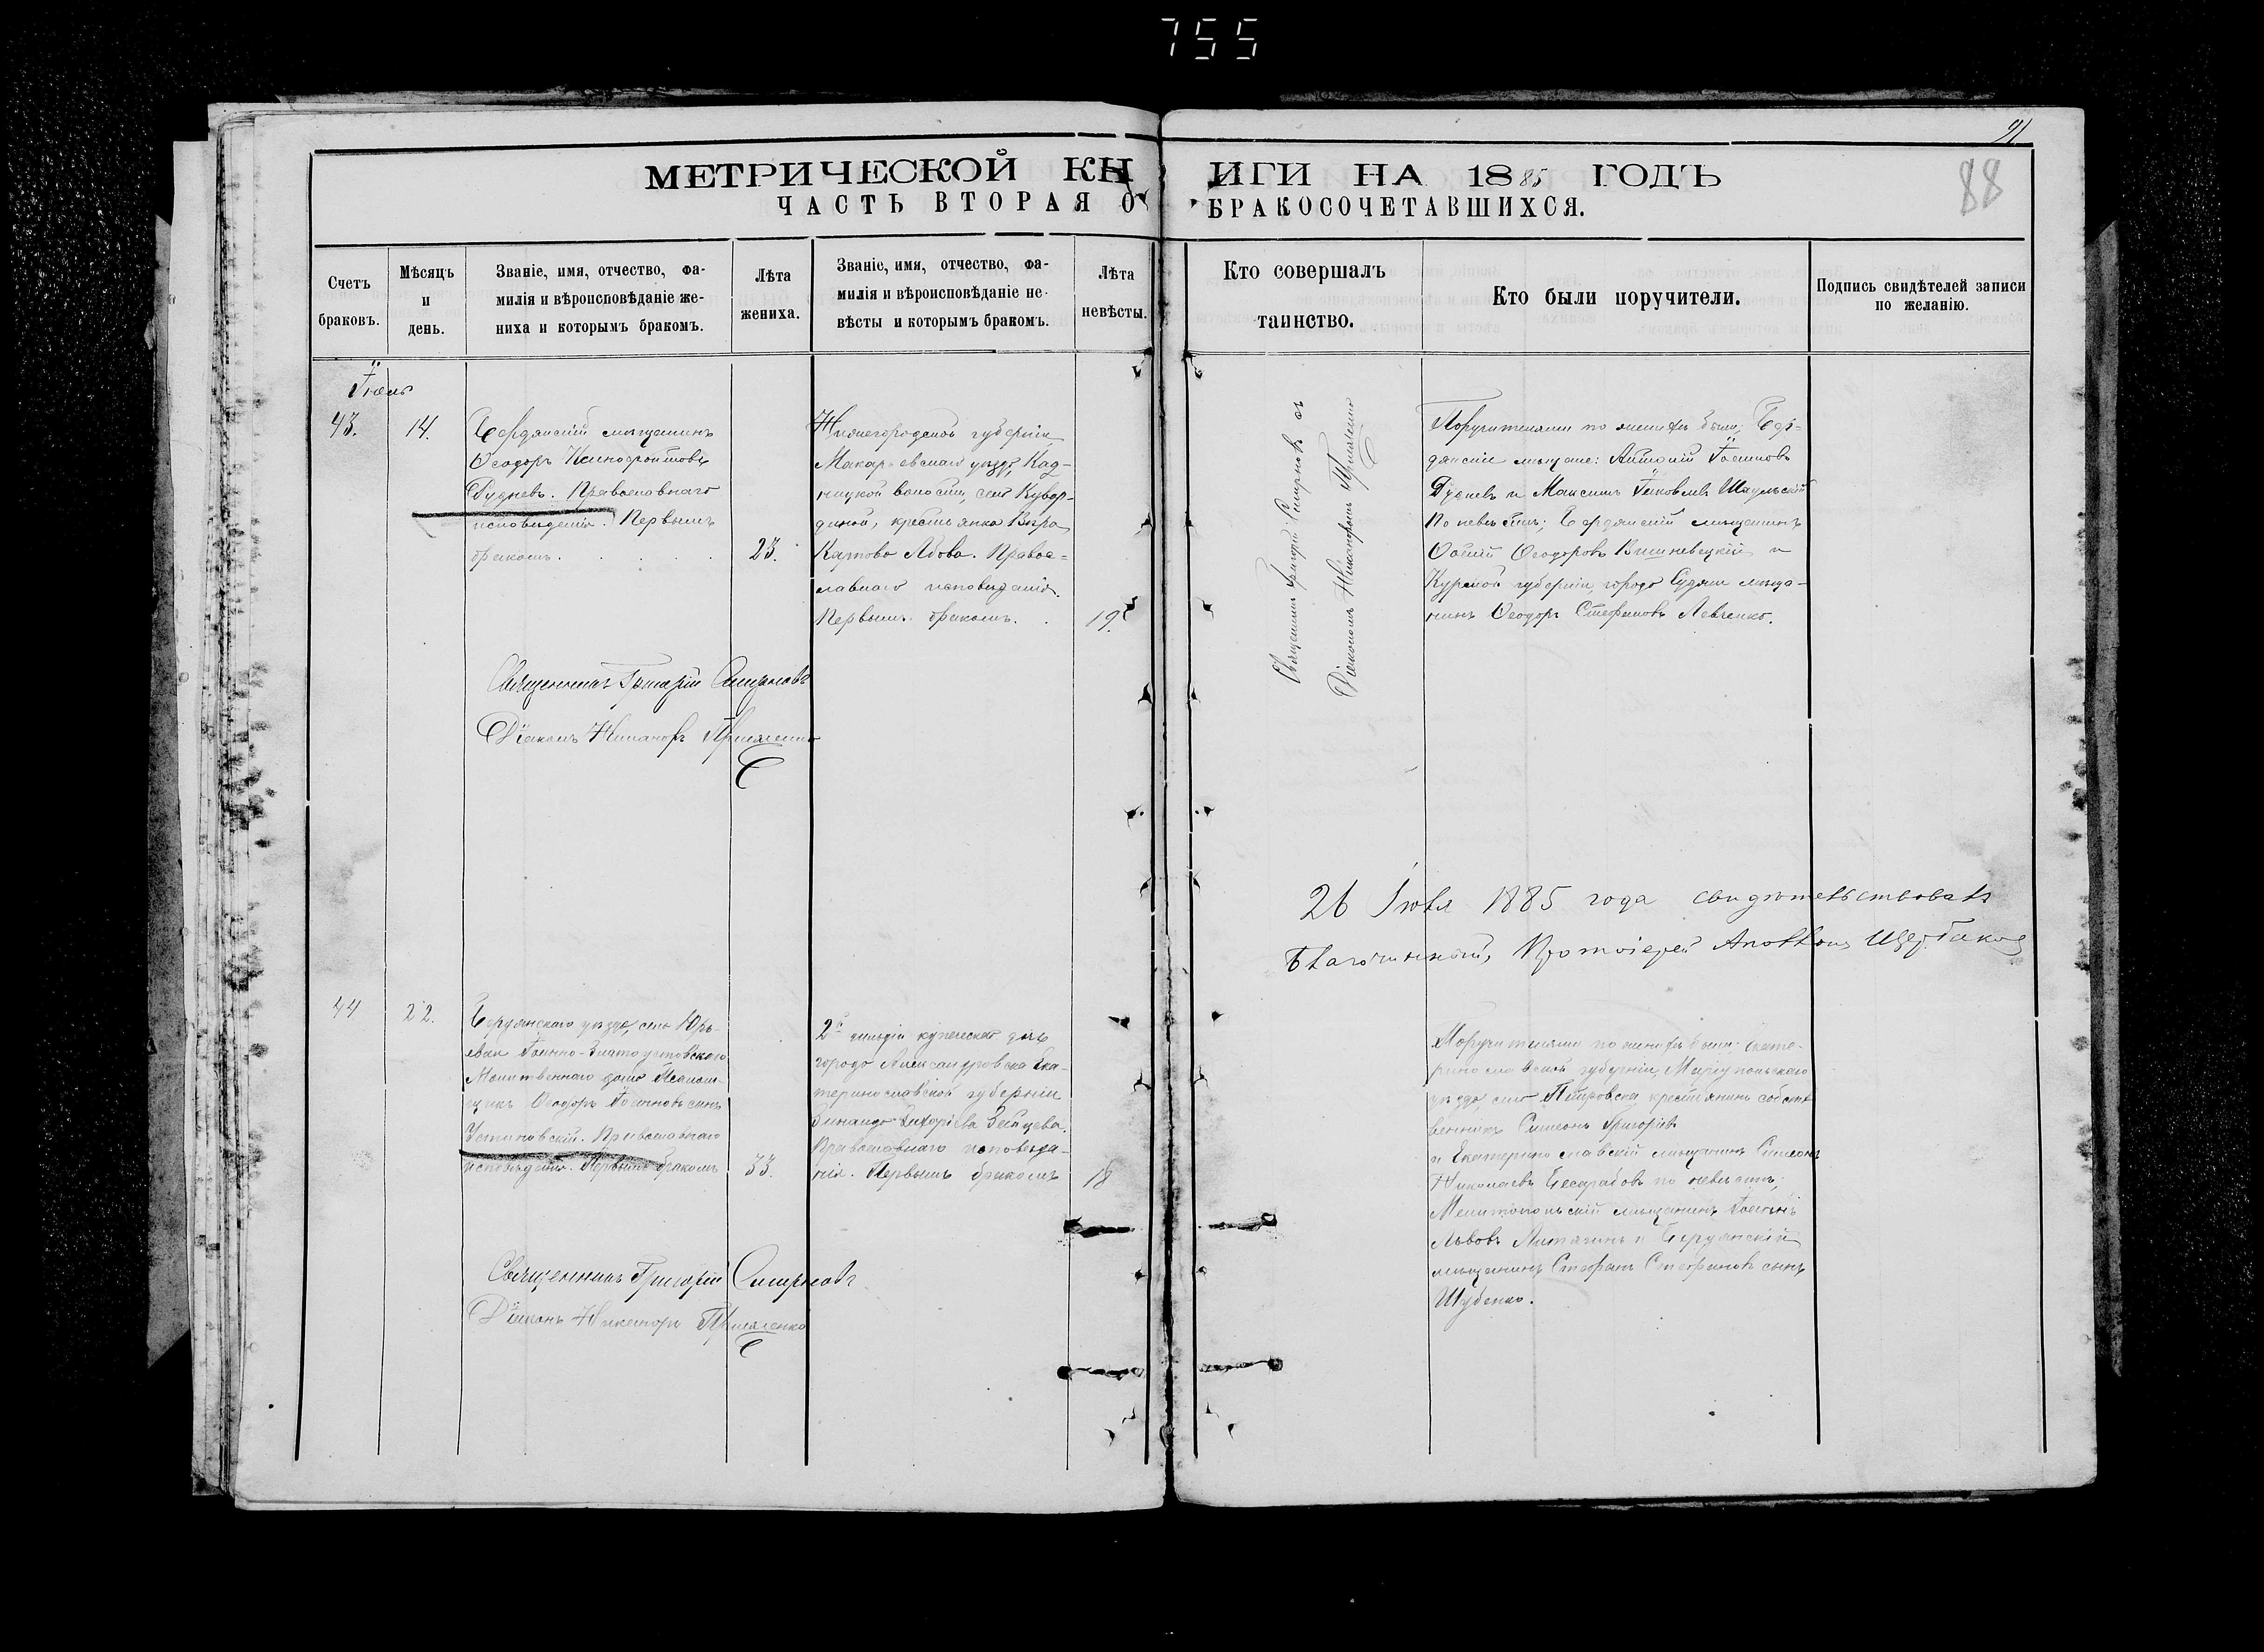 755
91
88
МЕТРИЧЕСКОЙ КНИГИ НА 1885 ГОДЪ
ЧАСТЬ ВТОРАЯ О БРАКОСОЧЕТАВШИХСЯ.
Счетъ
браковъ.
Мѣсяцъ
и
день.
Званіе, имя, отчество, фа-
милія и вѣроисповѣданіе же-
ниха и которымъ бракомъ.
Лѣта
жениха.
Званіе, имя, отчество, фа-
милія и вѣроисповѣданіе не-
вѣсты и которымъ бракомъ.
Лѣта
невѣсты.
Кто совершалъ
таинство.
Кто были поручители.
Подпись свидѣтелей записи
по желанію.
Іюль
43.
14.
Бердянскій мѣщанинъ
Ѳеодоръ Ксенофонтовъ
Рудневъ. Православнаго
исповѣданія. Первымъ
бракомъ.
23.
Нижегородской губерніи
Макарьевскаго уѣзда, Кад-
ницкой волости, села
крестьянка
Карпова Православнаго исповѣданія.
Первымъ бракомъ.
19.
Священникъ Григорій Смирновъ съ
Діакономъ Никаноромъ
Поручителями по женихѣ были; Бер-
дянскіе мѣщане: Антоній Іоанновъ
Рудневъ и Максимъ Іаковлевъ
По невѣстѣ; Бердянскій мѣщанинъ
Ѳеодоровъ Вишневецкій и
Курской губерніи, города Суджи мѣща-
нинъ Ѳеодоръ Стефановъ Левченко.
Священникъ Григорій Смирновъ
Діаконъ Никаноръ
26 Іюля 1885 года свидѣтельствовалъ
Благочинный, Протоіерей Аполлонъ Щербаковъ
44
22.
Бердянскаго уѣзда, села Юрь-
евки Іоанно-Златоустовскаго
Молитвеннаго дома Псалом-
щикъ Ѳеодоръ Іоанновъ сынъ
Устиновскій. Православнаго
исповѣданія. Первымъ бракомъ
33.
2й гильдіи купеческая дочь
города Александровска Ека-
теринославской губерніи
Зинаида Зайцева.
Православнаго исповѣда-
нія. Первымъ бракомъ
18
Поручителями по женихѣ были; Екате-
ринославской губерніи, Маріупольскаго
уѣзда, села Петровска крестьянинъ собст-
венникъ Симеонъ Григорьевъ
и Екатеринославскій мѣщанинъ Симеонъ
Николаевъ Бесарабовъ по невѣстѣ;
Мелитопольскій мѣщанинъ Іоаннъ
Львовъ и Бердянскій
мѣщанинъ Стефанъ Стефановъ сынъ
Шубенко.
Священникъ Григорій Смирновъ
Діаконъ Никаноръ